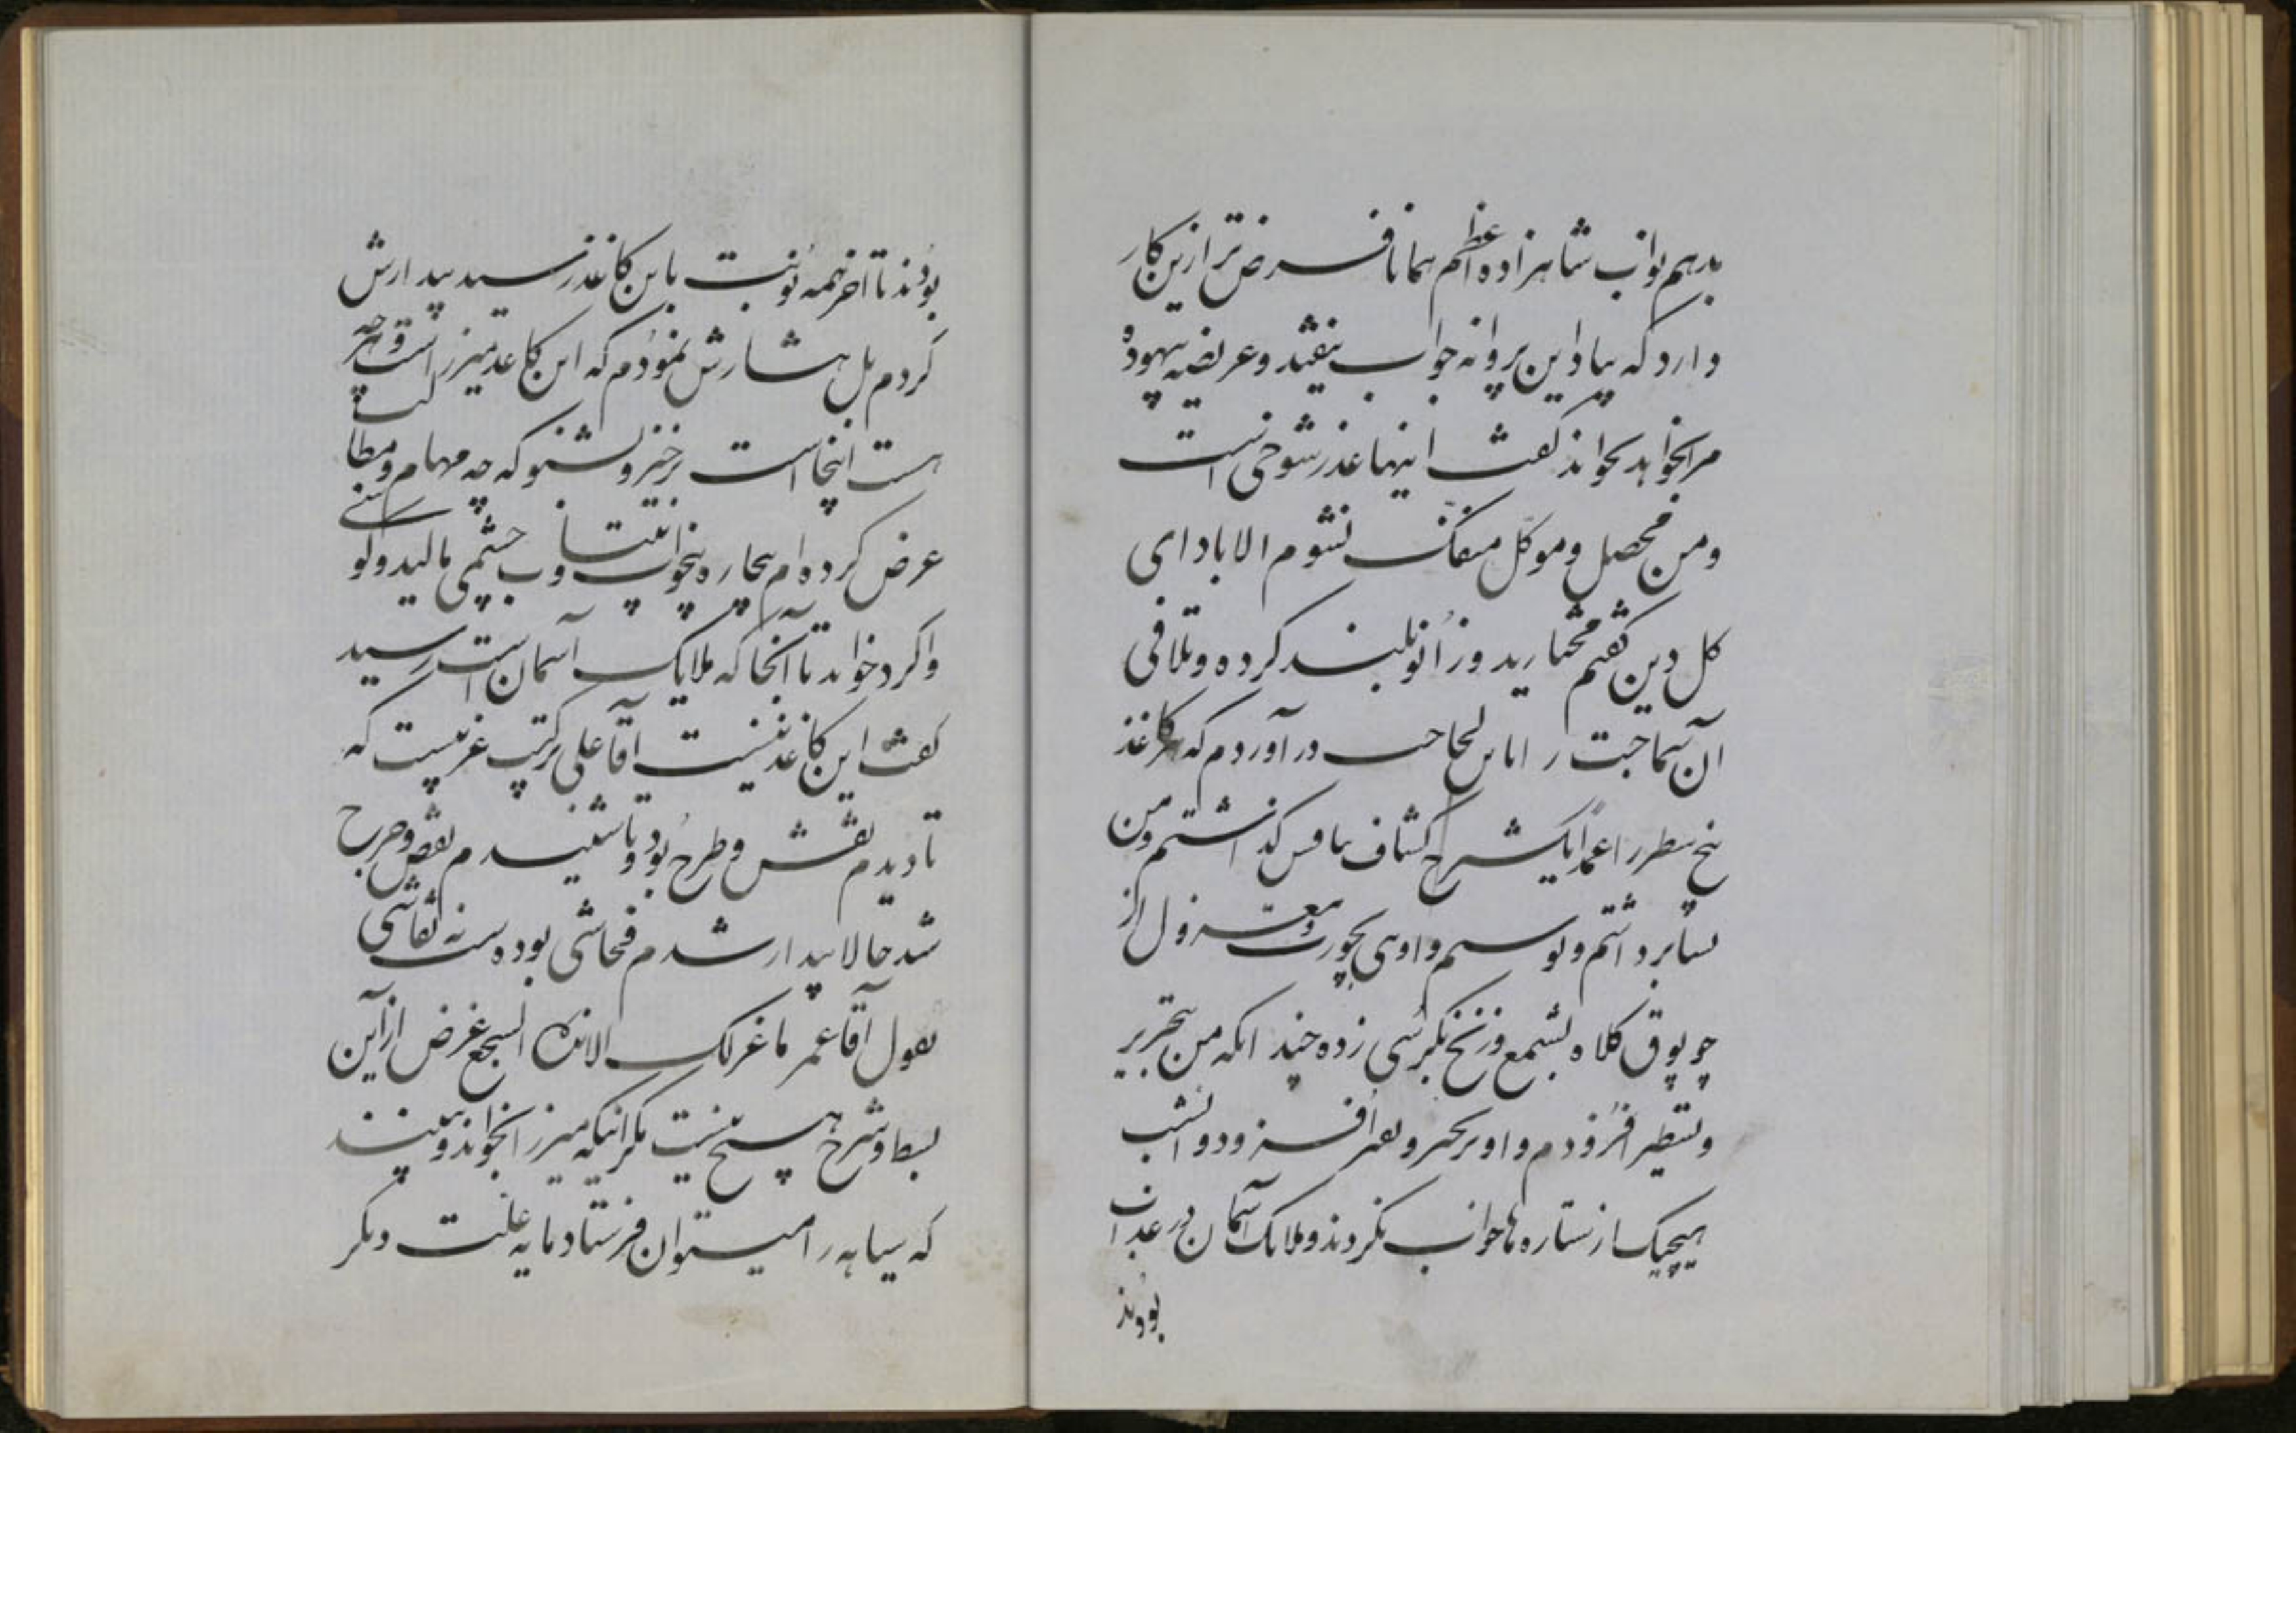 بدهم نواب شاهزاده اعظم همانا فرض تر ازین کار
دارد که بیاد این پروانه جواب بیفتد و عریضه بیهوده
مرا بخواهد بخواند گفت اینها عذر شوخی است
و من محصل و موکل منفک نشوم الا باداى
کل دین گفتم مختارید و زانو بلند کرده و تلافی
آن سماجت را باین لجاجت در آوردم که هر کاغذ
پنج سطر را عمداً یک شرح کشاف مافس گذاشتم و من
بنا برداشتم و نوشتم و او هی بچورت و معزول از
چوپوق کلاه بشمع و زنخ بکرسی زده چندانکه من بتحریر
و تسطیر افزودم و او بر تحیر و تغیر افزود و امشب
هیچیک از ستاره ها خواب نکردند و ملائک آسمان در عذاب
بودند
بودند تا آخر همه نوبت باین کاغذ رسید بیدارش
کردم بل هشارش نمودم که این کاغذ میرزا است و هر چه
هست اینجا است برخیز و بشنو که چه مهام و مطالب
عرض کرده ام بیچاره بیخواب بیتاب و چشمی مالید و لو
واکرد خواند تا آنجا که ملایک آسمان است رسید
گفت این کاغذ نیست آقا علی پر کتب غریبست که
تا دیدم نقش و طرح بود و تا شنیدم نقص و جرح
شد حالا بیدار شدم فحاشی بوده است نه نقاشی
بقول آقا عمر ما غرک الا بذلک السجع غرض از این
بسط و شرح هیچ نیست مگر اینکه میرزا بخواند و ببیند
که سیاهه را میتوان فرستاد ما به علت دیگر